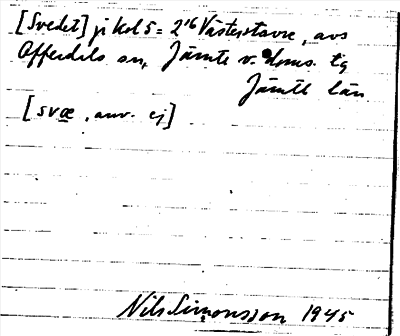 [Svedet] ji kol 5 = 2¹⁶ Västerstavre, avs
Offerdals sn, Jämts v. doms. tg
Jämtl län
[svæ, anv. ej]
Nils Simonsson 1945